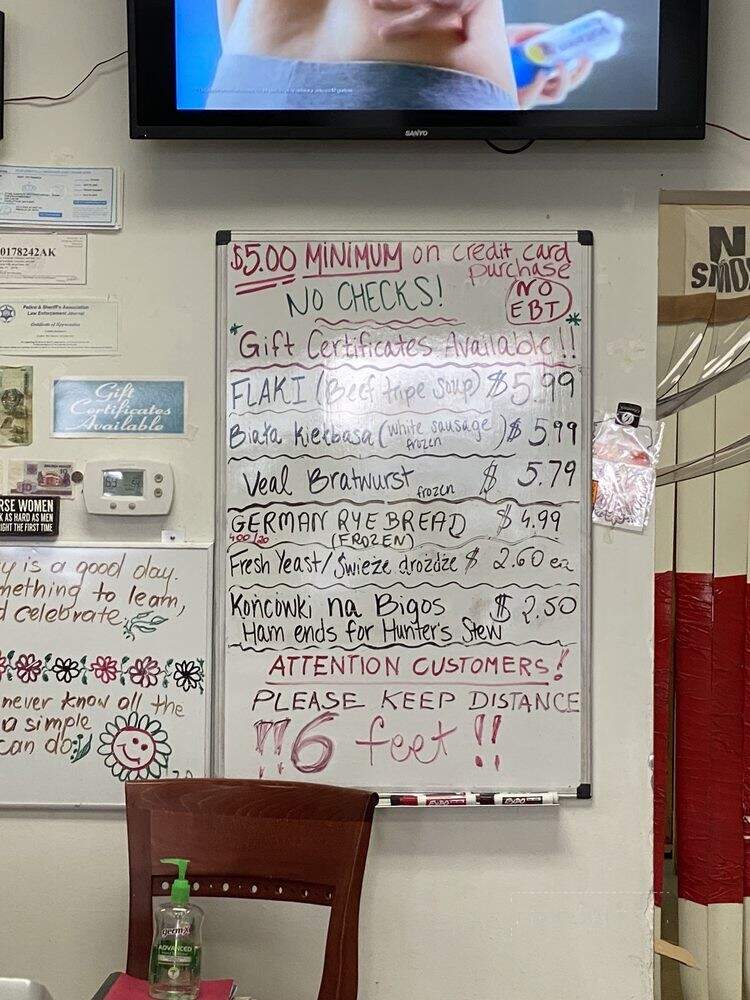 SANYO
0178242AK
Police & Sheriff's Association
Law Enforcement Journal
Certificate of Appreciation
Gift
Certificates
Available
RSE WOMEN
K AS HARD AS MEN
RIGHT THE FIRST TIME
y is a good day.
mething to learn,
d celebrate.
never know all the
a simple
can do.
$5.00 MINIMUM on credit card
purchase
NO CHECKS!
NO
EBT
* Gift Certificates Available!! *
FLAKI (Beef tripe soup) $5.99
Biała Kiełbasa (white sausage) $5.99
frozen
Veal Bratwurst frozen $5.79
GERMAN RYE BREAD $4.99
(FROZEN)
Fresh Yeast/Świeże drożdże $2.60 ea
Końcówki na Bigos $2.50
Ham ends for Hunter's Stew
ATTENTION CUSTOMERS!
PLEASE KEEP DISTANCE
!!6 feet!!
EXPO
EXPO
germX
ADVANCED
N
SMO